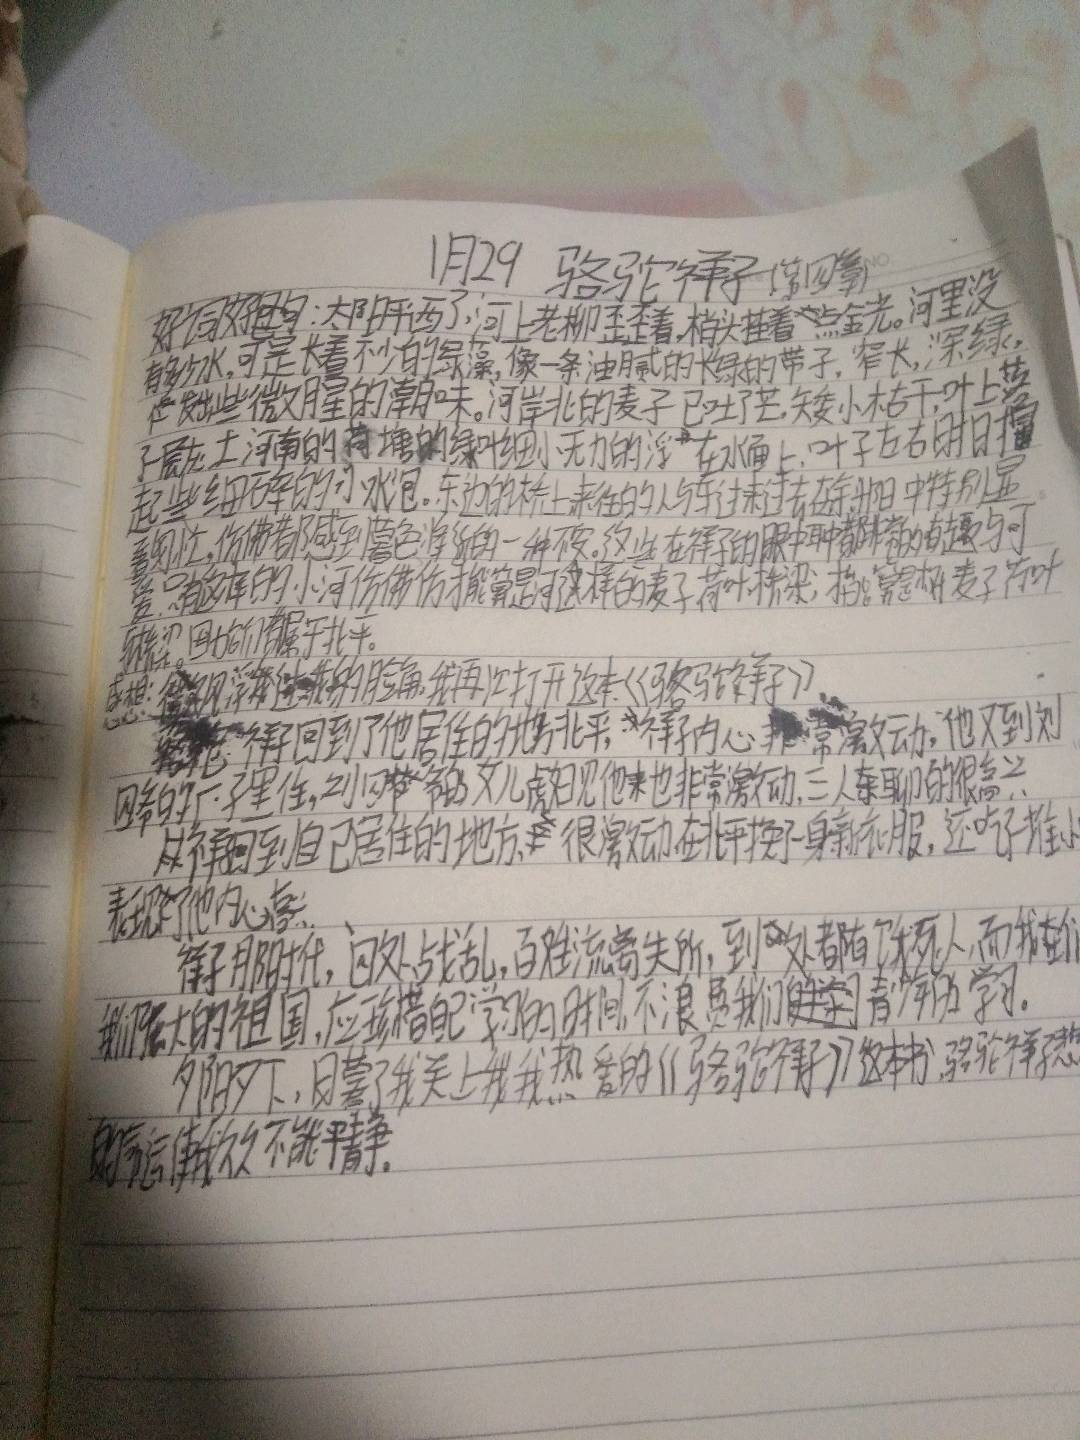 1月29 骆驼祥子(第四章)
好词好句:太阳平西了,河上老柳歪歪着,梢头挂着点金光。河里没
有多少水,可是长着不少的绿藻,像一条油腻的长绿的带子,窄长,深绿,
发出些微腥的潮味。河岸北的麦子已吐了芒,矮小枯干,叶上落
了一层灰土河南的荷塘的绿叶细小无力的浮在水面上,叶子左右时时冒
起些细碎的小水泡。东边的桥上来往的人与车过来过去在斜阳中特别显
仿佛都感到暮色将近的一种不安。这些在祥子的眼中耳中都非常的有趣与可
爱只有这样的小河仿佛才能算是河这样的麦子荷叶桥梁,才能算是树麦子荷叶
与桥梁。因为它们都属于北平。
感想:我再次打开这本《骆驼祥子》
祥子回到了他居住的地方北平,祥子内心非常激动,他又到刘
四爷的厂子里住,刘四爷的女儿虎妞见他来也非常激动,三人聊的很高兴
从祥子回到自己居住的地方、很激动在北平换了一身新衣服,还吃了
表现了他内心高兴
祥子那时代,战乱,百姓流离失所,到处都有死人,而我在
我们强大的祖国,应该惜自己学习的时间,不浪费我们青少年的学习。
夕阳夕下,日暮了我关上我我热爱的《骆驼祥子》这本书,骆驼祥子
的命运使我久久不能平静。